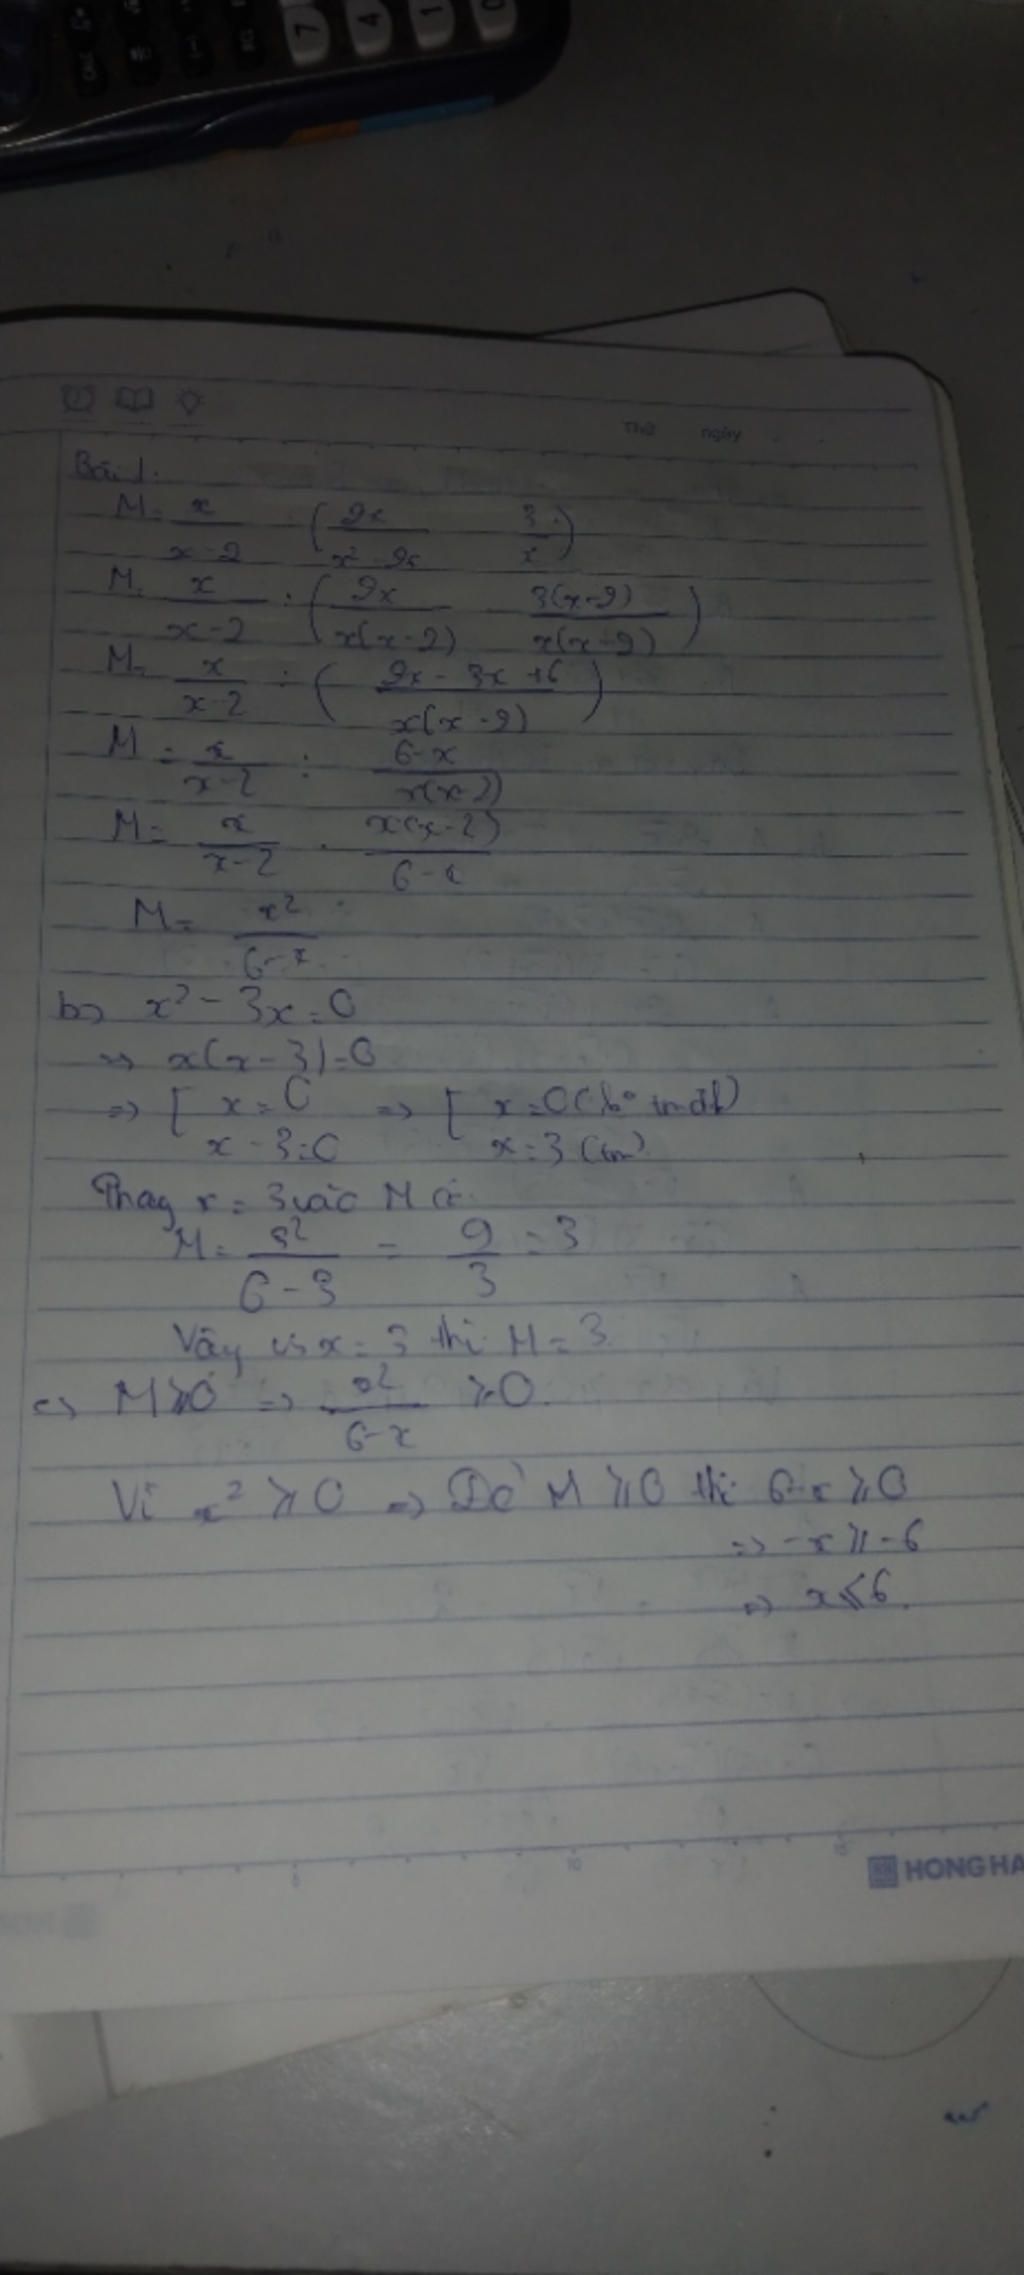 CALC
7 4 1 0
Thứ ngày
Bài 1.
M = x/(x-2) : (2x/(x²-2x) - 3/x)
M = x/(x-2) : (2x/(x(x-2)) - 3(x-2)/(x(x-2)))
M = x/(x-2) : ((2x - 3x + 6)/(x(x-2)))
M = x/(x-2) : (6-x)/(x(x-2))
M = x/(x-2) . x(x-2)/(6-x)
M = x²/(6-x)
b) x² - 3x = 0
=> x(x-3) = 0
=> [ x = 0 => [ x = 0 (ko tmđk)
x - 3 = 0 x = 3 (tm)
Thay x = 3 vào M có
M = 3²/(6-3) = 9/3 = 3
Vậy với x = 3 thì M = 3.
c) M ⩾ 0 => x²/(6-x) ⩾ 0.
Vì x² ⩾ 0 => Để M ⩾ 0 thì 6-x ⩾ 0
=> -x ⩾ -6
=> x ⩽ 6.
5 10 15
HONG HA